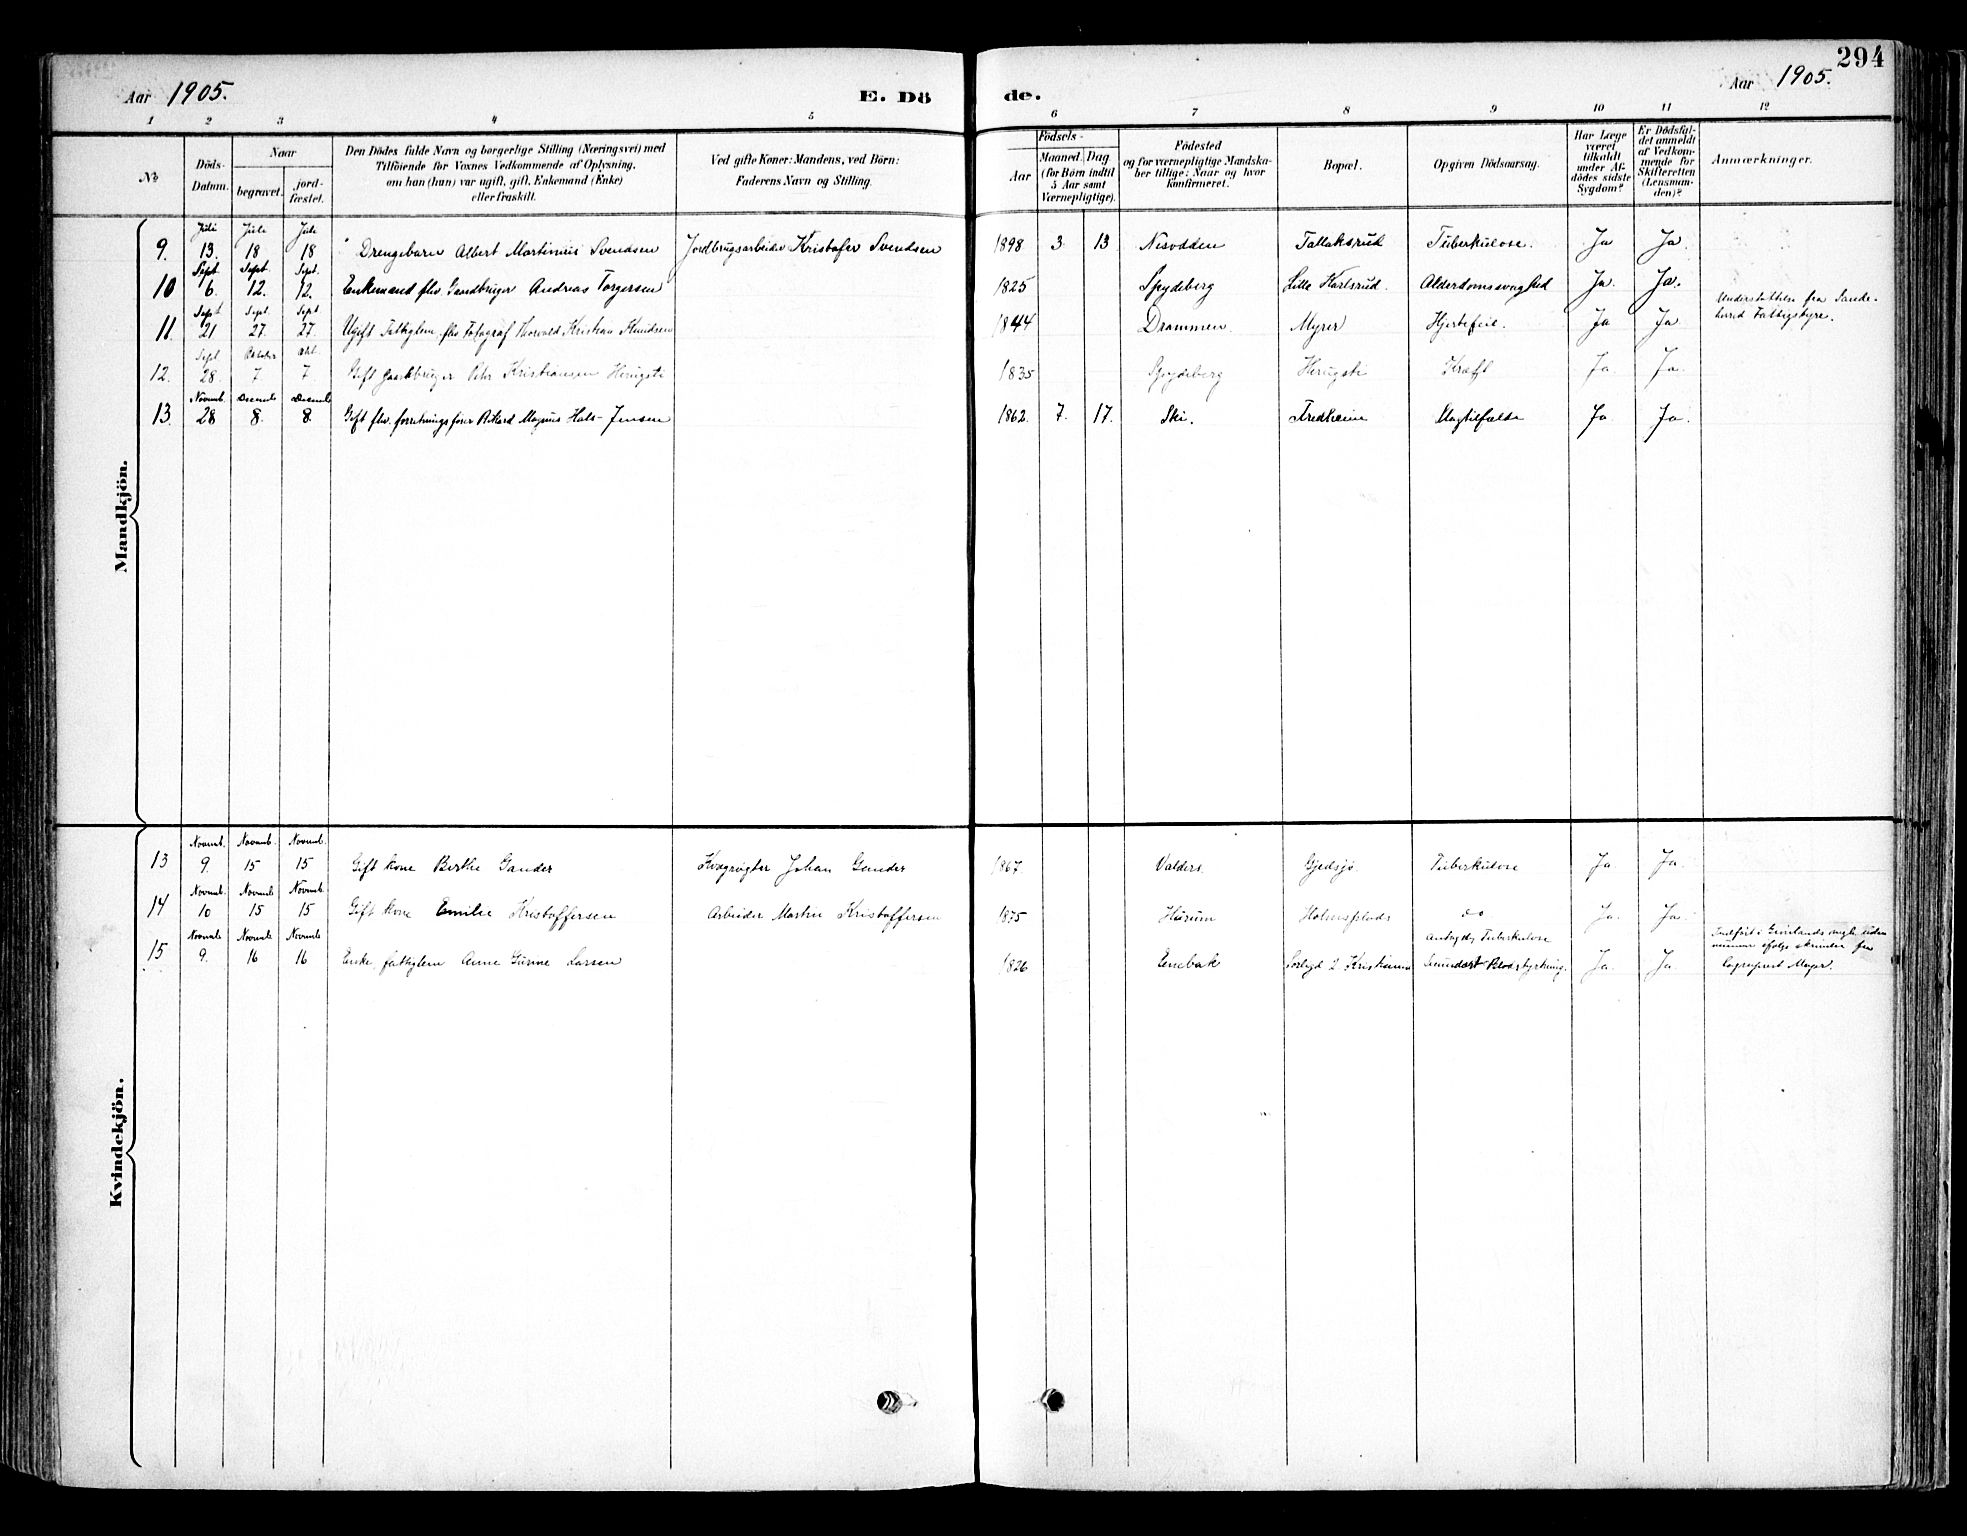 294
Aar 1905.
E. Dö
de.
Aar 1905.
1 2 3 4 5 6 7 8 9 10 11 12
No
Döds-Datum.
Naar
begravet.
jord-fæstet.
Den Dödes fulde Navn og borgerlige Stilling (Næringsvei) med
Tilföiende for Voxnes Vedkommende af Oplysning,
om han (hun) var ugift, gift, Enkemand (Enke)
eller fraskilt.
Ved gifte Koner: Mandens, ved Börn:
Faderens Navn og Stilling.
Födsels-
Aar
Maaned. Dag
(for Börn indtil
5 Aar samt
Værnepligtige).
Födested
og for værnepligtige Mandska-
ber tillige: Naar og hvor
konfirmeret.
Bopæl.
Opgiven Dödsaarsag.
Har Læge
været
tilkaldt
under Af-
dödes sidste
Sygdom?
Er Dödsfal-
det anmeldt
af Vedkom-
mende for
Skifteretten
(Lensman-
den)?
Anmærkninger.
Mandkjön.
Juli Juli Juli
9. 13. 18 18 Drengebarn Albert Martinius Svendsen Jordbrugsarbeider Kristofer Svendsen 1898 3. 13 Nesodden Tallaksrud Tuberkulose. Ja Ja.
Sept. Sept. Sept.
10 6. 12. 12. Enkemand flv. Gaardbruger Andreas Torgersen 1825 Spydeberg Lille Karlsrud. Alderdomssvaghed Ja. Ja.
Sept Sept. Sept
11. 21 27 27 Ugift Fattiglem flv Fotograf Thorvald Kristian Knudsen 1844 Drammen Myrer Hjertefeil. Ja Ja
Understøttes fra Sande-
herred Fattigstyre.
Sept Oktober Okt.
12. 28. 7 7 Gift Gaardbruger Peder Kristiansen Herugsti 1835 Spydeberg Herugsti Kræft Ja. Ja.
Novemb. Decemb Decemb
13. 28 8. 8. Gift flv. forretningsfører Rikard Magnus Hals-Jensen 1862. 7. 17. Ski. Fredheim Slagtilfælde Ja Ja.
Kvindekjön.
Novemb. Novemb. Novemb.
13 9. 15 15 Gift kone Berthe Gander Kvægrøgter Johan Gander 1867. Valders. Gjedsjø Tuberkulose Ja Ja.
Novemb. Novemb Novemb.
14 10 15 15 Gift kone Emilie Kristoffersen Arbeider Martin Kristoffersen 1875 Hurum do Ja. Ja.
Novemb Novemb Novemb
15 9. 16 16 Enke, fattiglem Anne Gurine Larsen 1826 Enebak Tuberkulose Ja. Ja
Meyer.